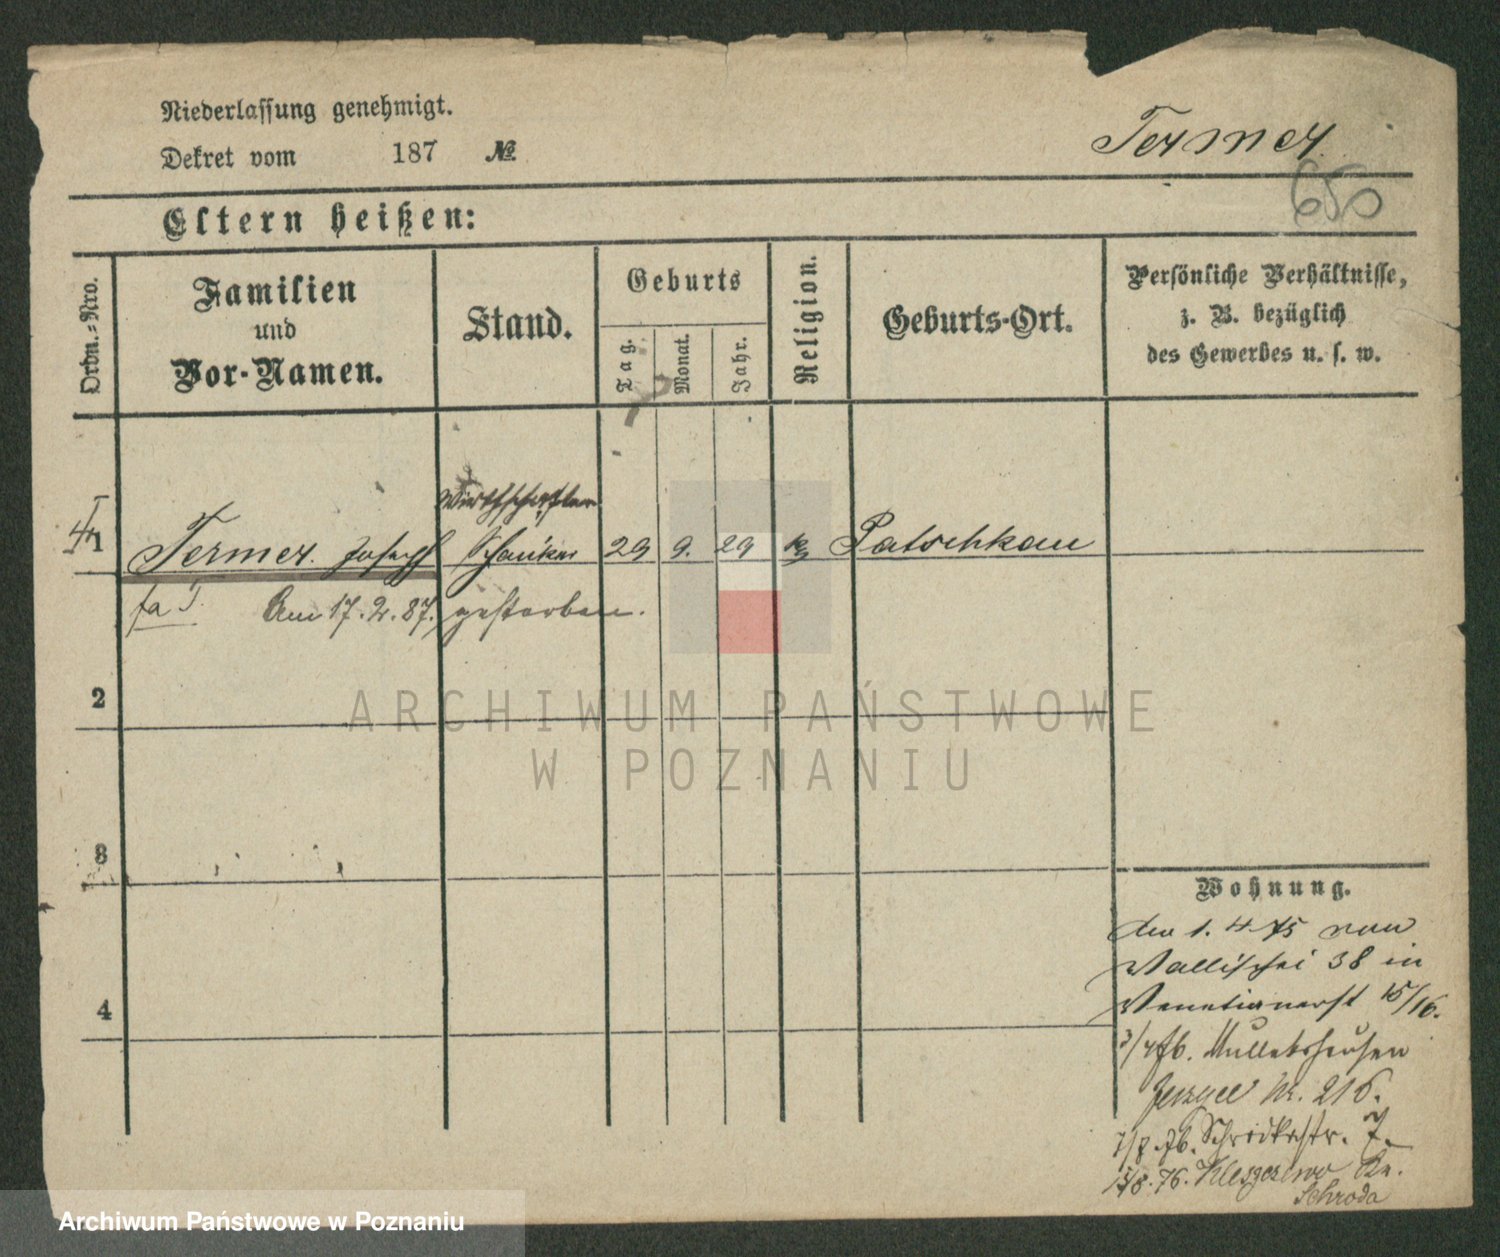 Niederlassung genehmigt.
Dekret vom 187 №
Termer
650
Eltern heißen:
Ordn.-Nro.
Familien
und
Vor-Namen.
Stand.
Geburts
Tag.
Monat.
Jahr.
Religion.
Geburts-Ort.
Persönliche Verhältnisse,
z. B. bezüglich
des Gewerbes u. s. w.
1
Termer Joseph
29 9. 29 k Patschkau
Am 17.2.87. gestorben.
2
3
4
Wohnung.
den 1. 4. 75 von
Wallischei 38 in
Venetianerst 15/16.
Nr. 216.
7.
Schroda
ARCHIWUM PAŃSTWOWE
W POZNANIU
Archiwum Państwowe w Poznaniu